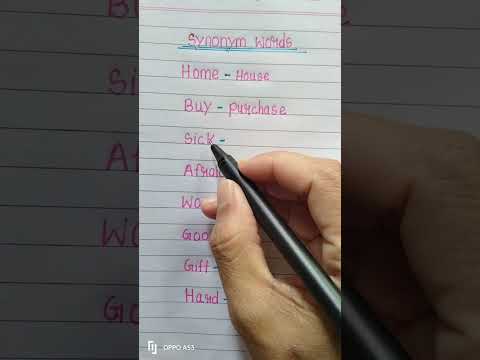 Synonym words
Home - House
Buy - purchase
Sick -
Gift -
Hard -
OPPO A53